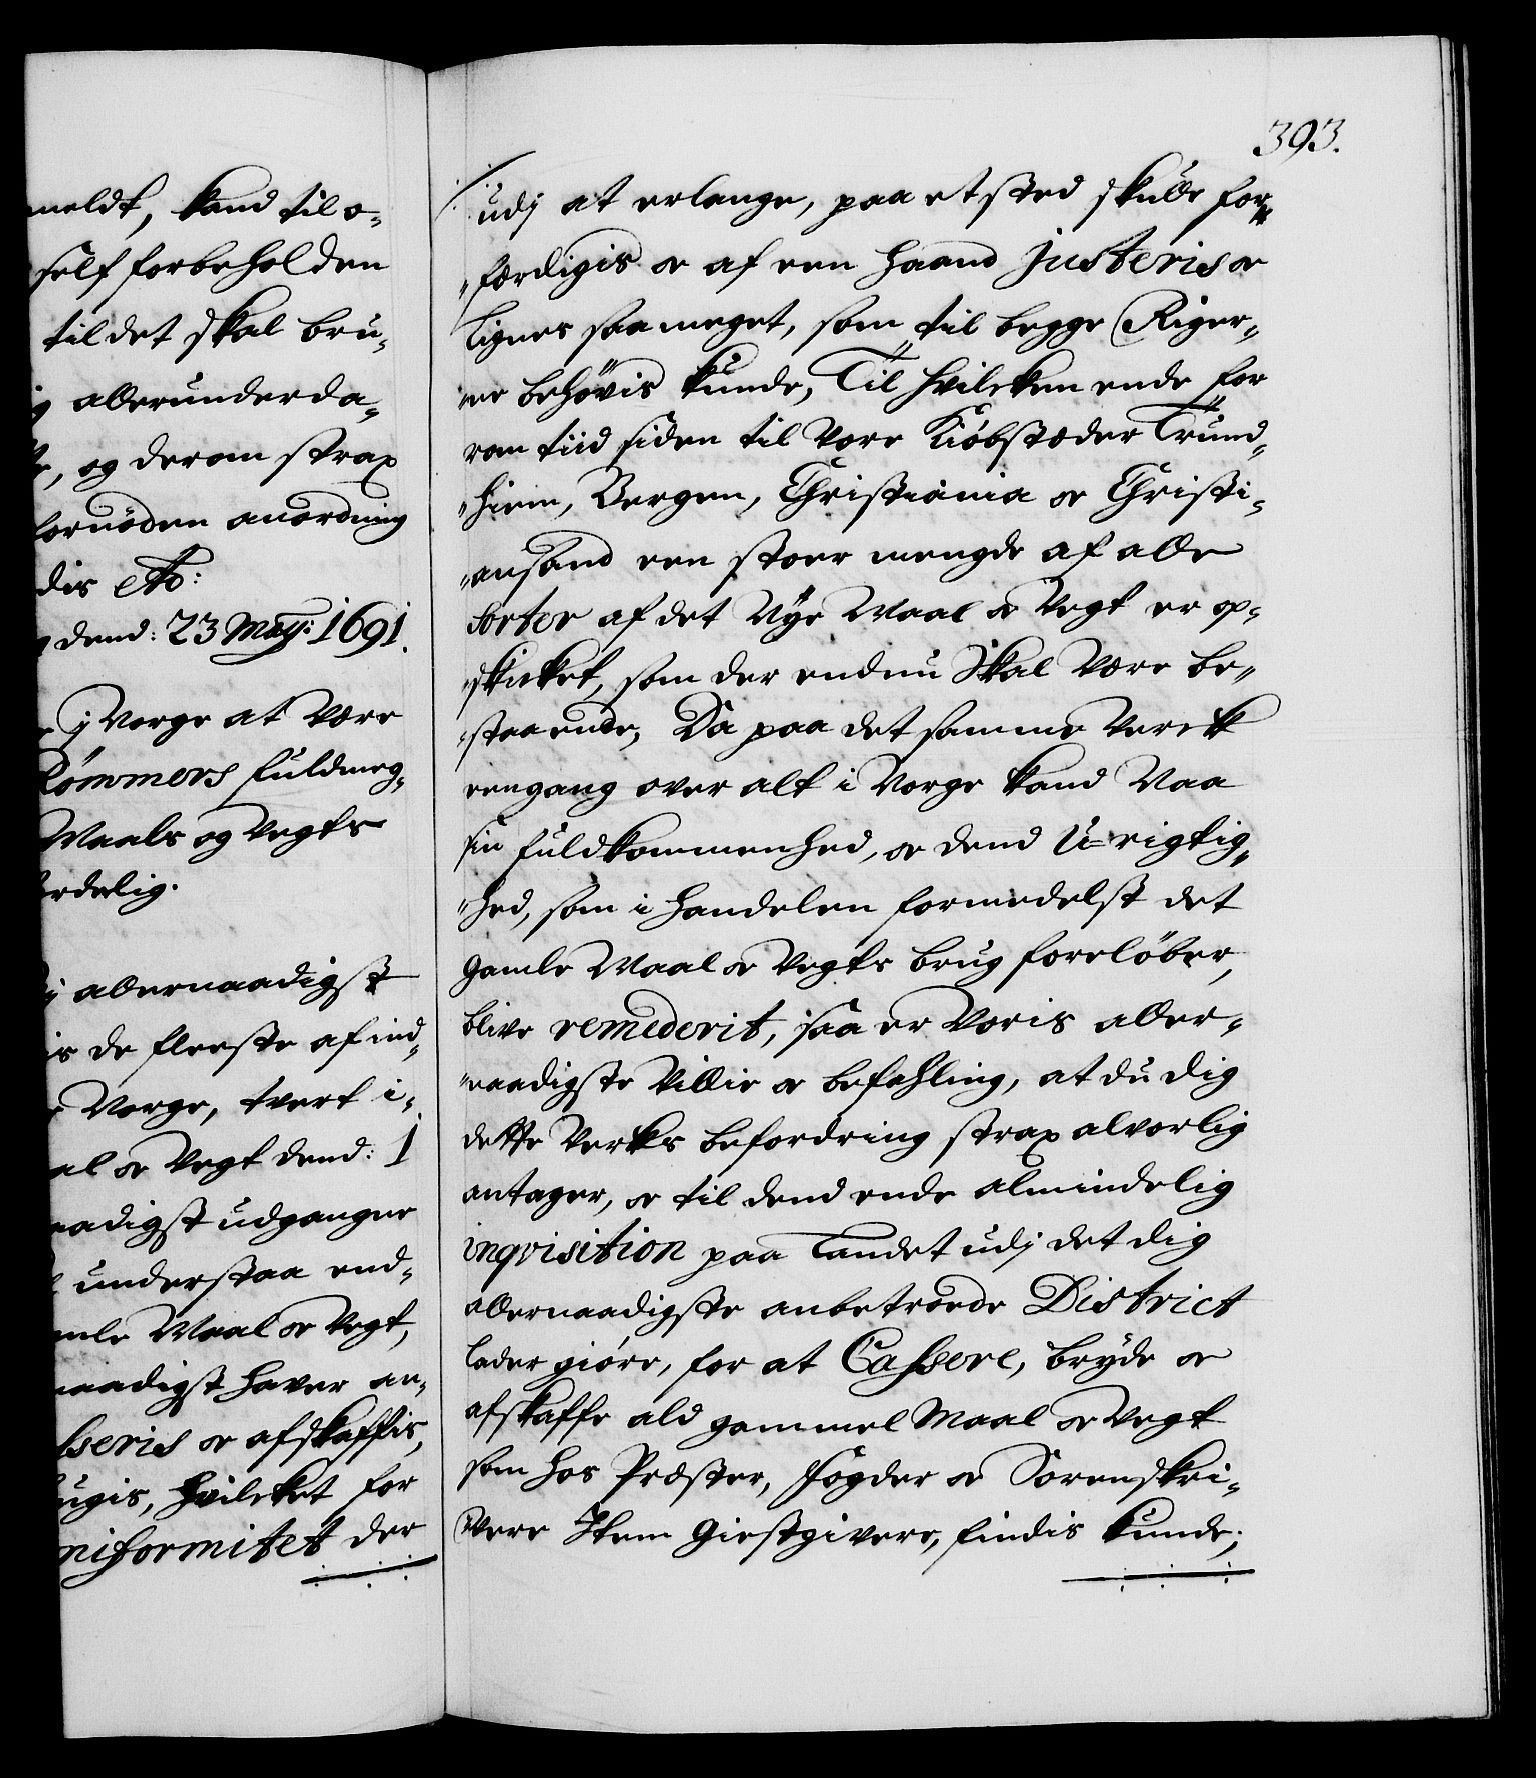 meldt, kand til o-
self forbeholden
til det skal bru-
allerunderda-
og derom strax
fornöden anordning
dis etc:
dend: 23 Maij: 1691.
j Norge at være
Rømmers fuldmeg-
Maals og Vegts
allernaadigst
de fleeste af ind-
Norge, tvert i-
al oc Vegt dend: 1
naadigst udgangne
understaa end-
amle Maal oc Vegt,
naadigst haver an-
sseris oc afskaffis,
ugis, hvilcket for
niformitet der
393.
udj at erlange, paa et sted skulle for-
"færdigis oc af een haand justeris oc
lignes saa meget, som til begge Riger-
"ne behøvis kunde, Til hvilcken ende for
rom tiid siden til Vore Kiöbstæder Trund-
"hiem, Bergen, Christiania oc Christi-
"ansand een stoer mengde af alle
sorter af det Nye Maal oc Vegt er op-
"skicket, som der endnu skal være be-
"staaende, Da paa det samme Verck
eengang over alt i Norge kand Naa
sin fuldkommenhed, oc dend U-rigtig-
"hed, som i handelen formedelst det
gamle Maal oc Vegts brug foreløber,
blive remederit, saa er Voris aller-
"naadigste Villie oc befahling, at du dig
dette Verks befordring strax alvorlig
antager, oc til dend ende almindelig
inqvisition paa Landet udj det dig
allernaadigste anbetroede District
lader giöre, for at Cassere, bryde oc
afskaffe ald gammel Maal oc Vegt
som hos Præster, fogder oc Sorenskri-
"vere Item Giestgivere, findis kunde;